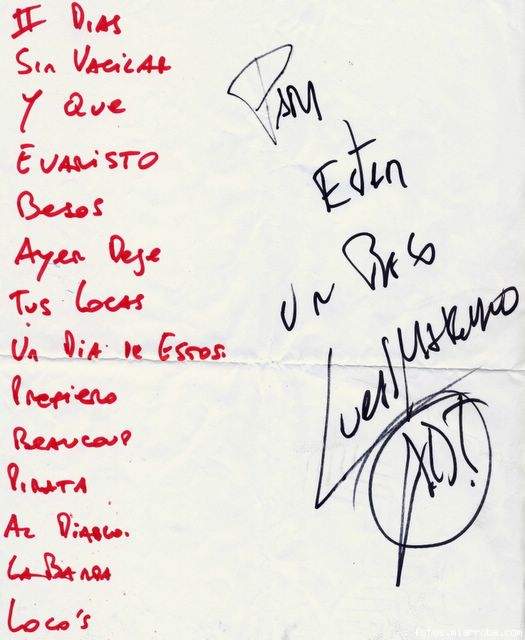 II Dias
Sin Vacilar
Y Que
Evaristo
Besos
Ayer Deje
Tus Locas
Un Dia de Estos.
Prefiero
Beaucoup
Pirata
Al Diablo.
La Banda
Loco's
Para
Ester
Un Beso